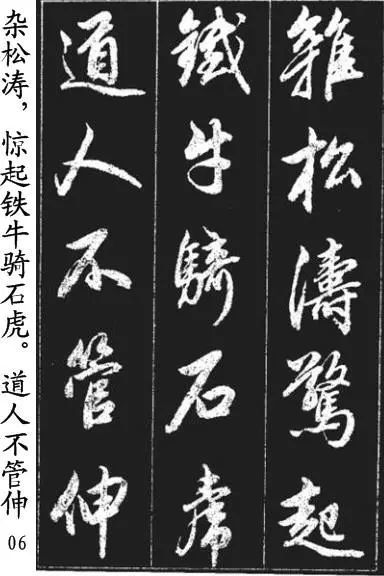 雜松濤驚起
鐵牛騎石虎
道人不管伸
杂松涛，惊起铁牛骑石虎。道人不管伸
06